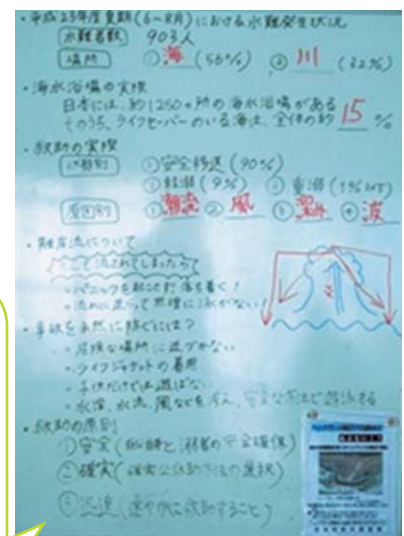 ・平成23年度夏期(6~8月)における水難発生状況
水難者数 903人
場所 ①海(56%) ②川(32%)
・海水浴場の実際
日本には、約1250ヶ所の海水浴場がある
そのうち、ライフセーバーのいる海は、全体の約15%
・救助の実際
①安全移送(90%)
②軽溺(9%) ③重溺(1%以下)
原因別 ①潮流 ②風 ④波
・離岸流について
もし流されてしまったら
・パニックを起こさず落ち着く!
・流れに逆らって無理に泳がない!
・事故を未然に防ぐには?
・危険な場所に近づかない
・ライフジャケットの着用
・子供だけでは遊ばない
・水深、水流、風などを
・救助の原則
①安全(救助者と溺者の安全確保)
②確実(確実な救助方法の選択)
③迅速(速やかに救助すること)